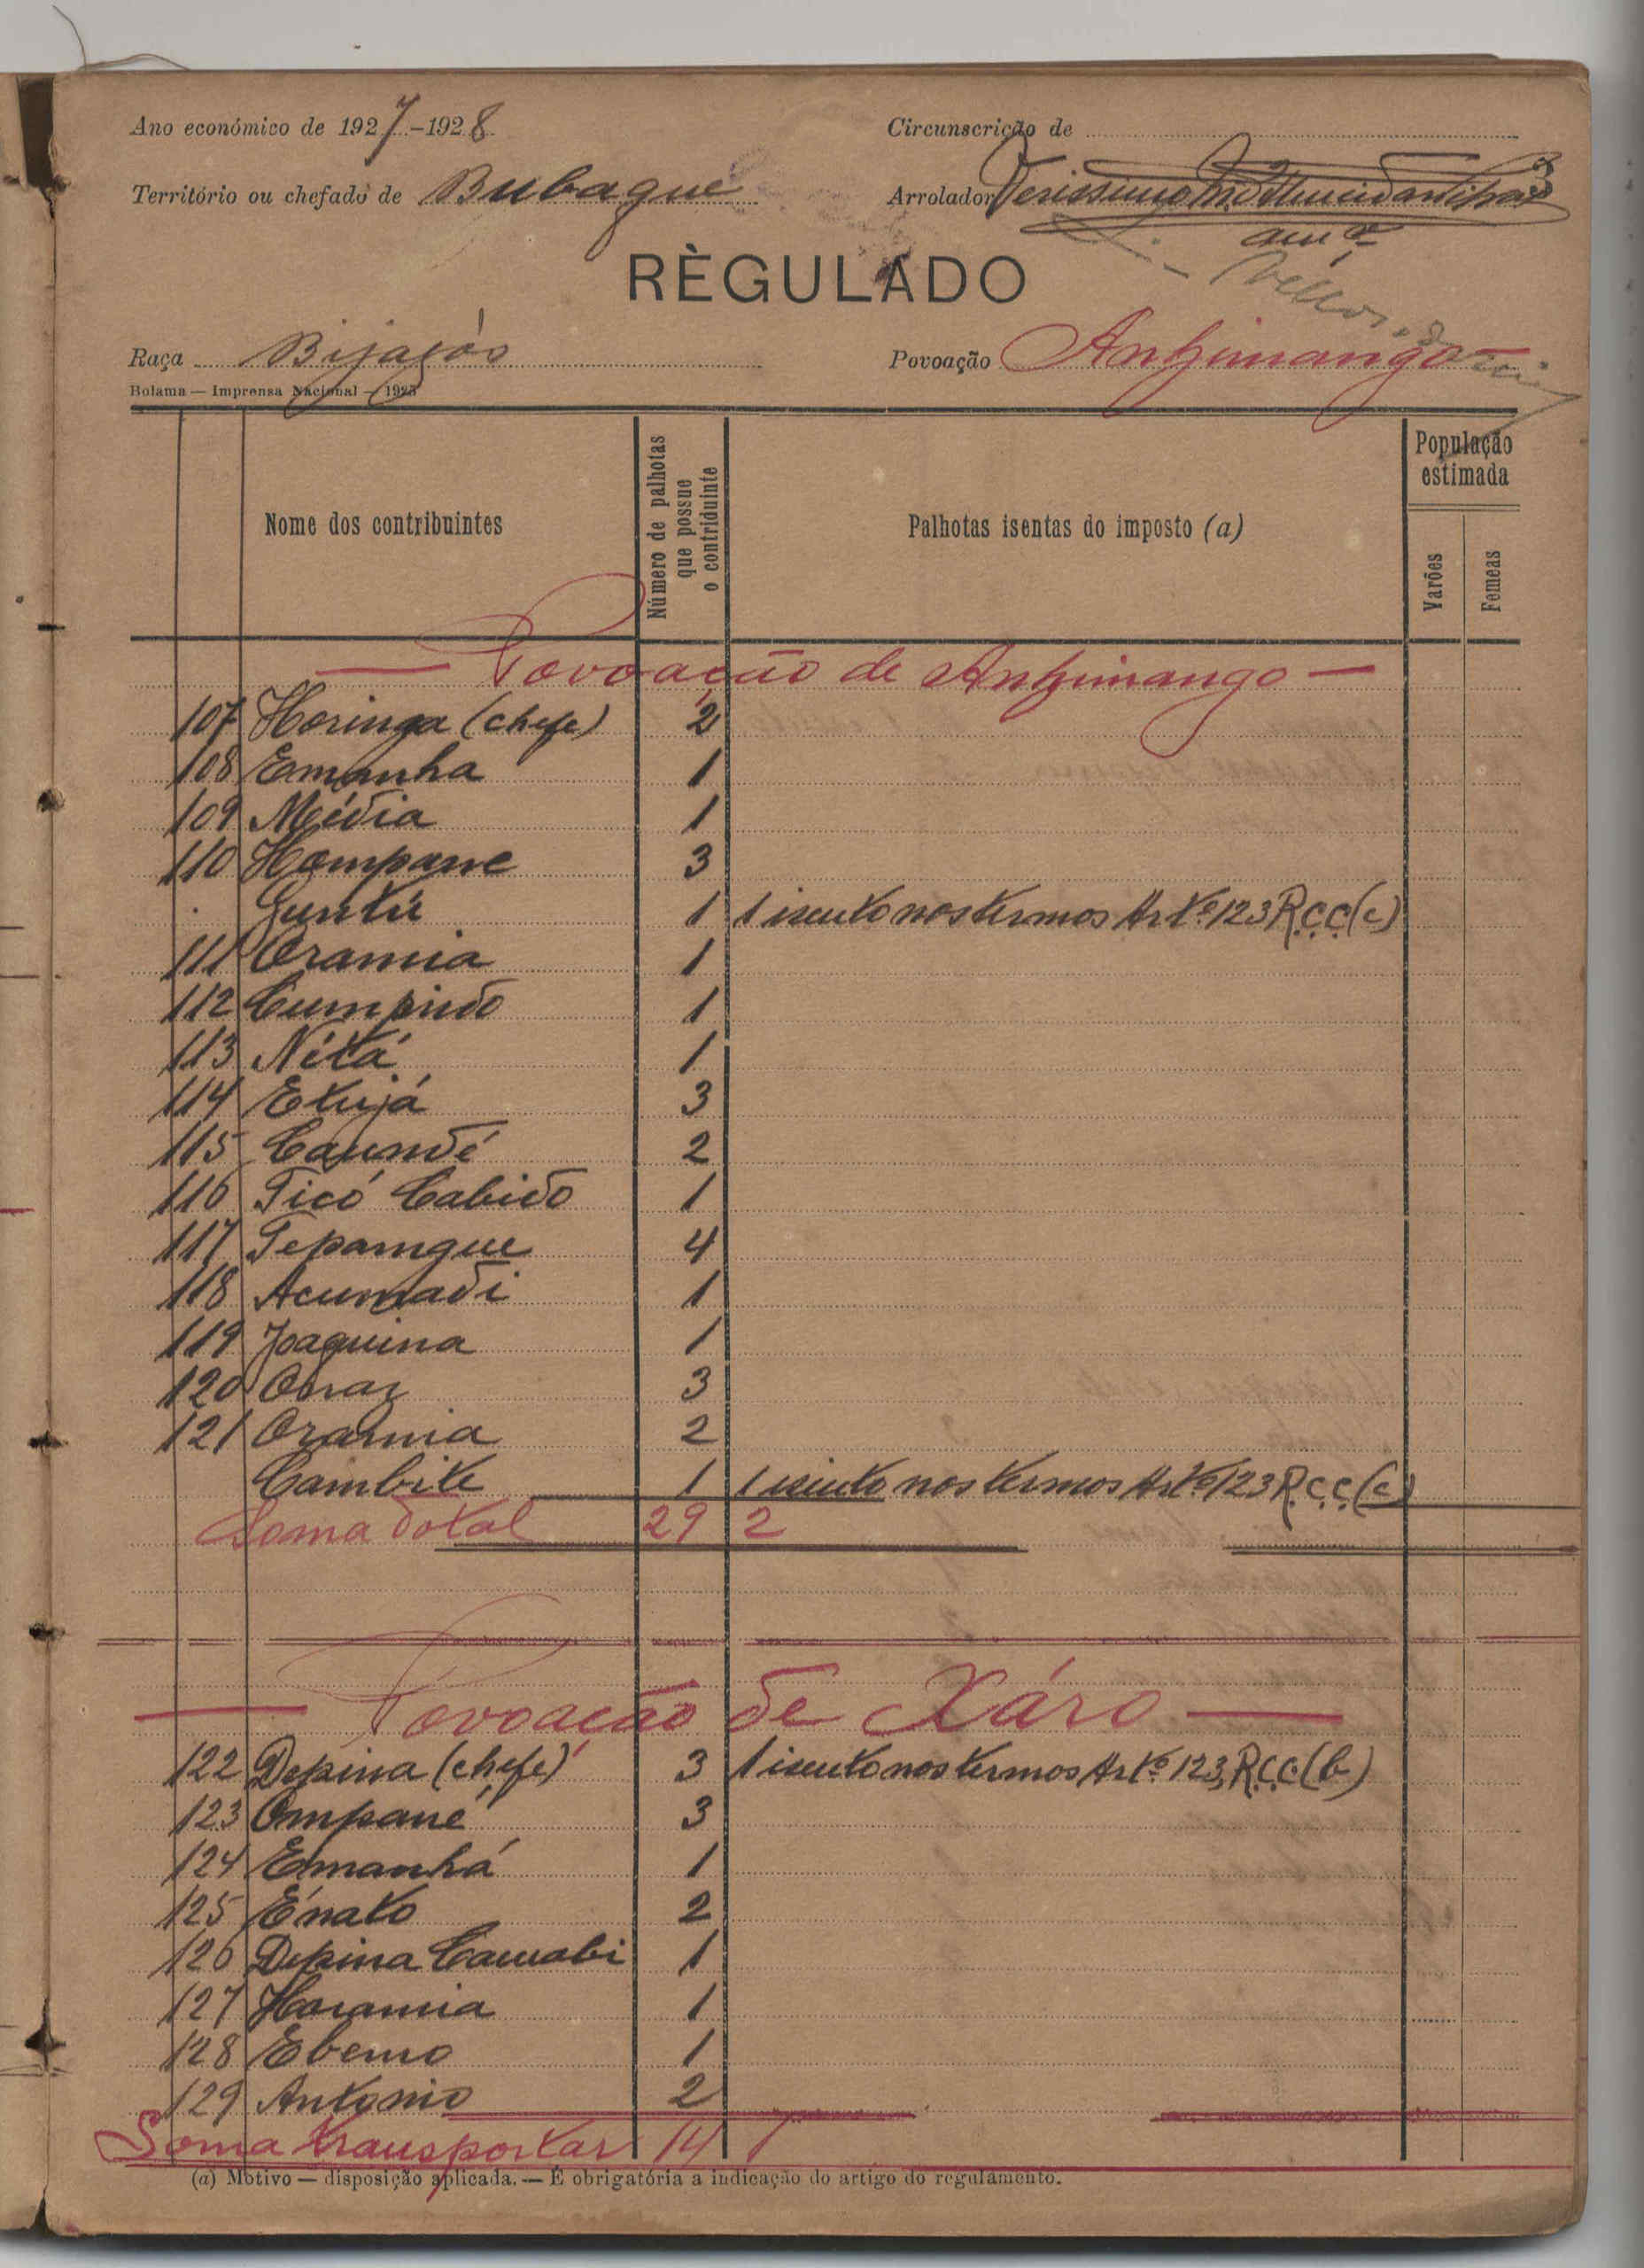 Ano económico de 1927-1928
Circunscrição de
Território ou chefado de Bubaque
Arrolador
RÈGULADO
Raça Bijagós
Povoação Ankimango
Bolama — Imprensa Nacional — 1925
Nome dos contribuintes
Número de palhotas que possue o contriduinte
Palhotas isentas do imposto (a)
População estimada
Varões
Femeas
— Povoação de Ankimango —
107 Horinga (chefe) 2
108 Emanha 1
109 Média 1
110 Hompane 3
Guntú 1 1 isento nos termos Artº 123 R.C.C. (c)
111 Oramia 1
112 Cumpido 1
113 Nétá 1
114 Etujá 3
115 Caundé 2
116 Ticó Cabido 1
117 Tepamgue 4
118 Acumadi 1
119 Joaquina 1
120 Obraz 3
121 Oramia 2
Cambite 1 1 isento nos termos Artº 123 R.C.C. (c)
Soma total 29 2
— Povoação de Xáro —
122 Depina (chefe) 3 1 isento nos termos Artº 123 R.C.C. (b)
123 Ompané 3
124 Emanhá 1
125 Énato 2
126 Depina Camabi 1
127 Horamia 1
128 Ebemo 1
129 Antonio 2
Soma transportar 14 1
(a) Motivo — disposição aplicada. — É obrigatória a indicação do artigo do regulamento.